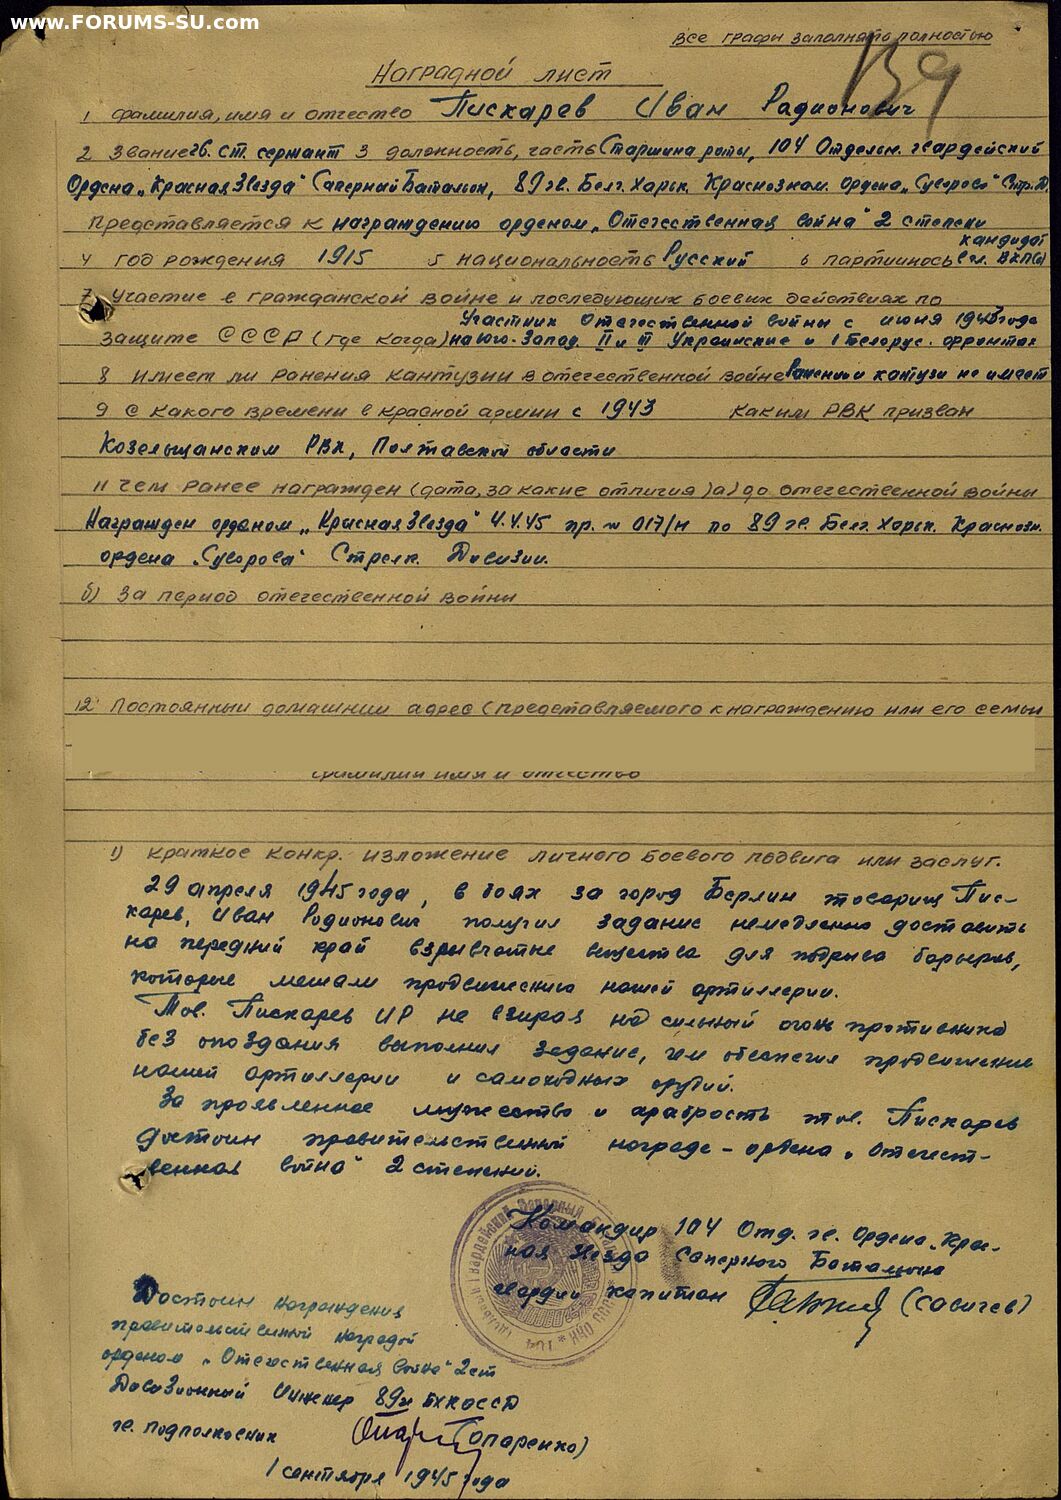 www.FORUMS-SU.com
Все графы заполнять полностью
139
Наградной лист
1 Фамилия, имя и отчество Пискарев Иван Радионович
2 Звание гв. ст. сержант 3 должность, часть Старшина роты, 104 Отдельн. гвардейский
Ордена „Красная Звезда" Саперный Батальон, 89 гв. Белг. Харьк. Краснознам. ордена „Суворова" Стр. Д.
Представляется к награждению орденом „Отечественная война" 2 степени
кандидат
4 год рождения 1915 5 национальность Русский 6 партийность в чл. ВКП(б)
7 Участие в гражданской войне и последующих боевых действиях по
Участник Отечественной войны с июня 1943 года
защите СССР (где когда) на Юго-Запад. II и III Украинские и 1 Белорус. фронтах
8 Имеет ли ранения кантузии в отечественной войне Ранений и кантузи не имеет
9 С какого времени в красной армии с 1943 каким РВК призван
Козельщанским РВК, Полтавской области
11 Чем ранее награжден (дата, за какие отличия) а) до отечественной войны
Награжден орденом „Красная Звезда" 4.4.45 пр. № 017/н по 89 гв. Белг. Харьк. Краснозн.
ордена „Суворова" Стрелк. Дивизии.
б) За период отечественной войны
12 Постоянный домашний адрес (представляемого к награждению или его семьи
фамилия имя и отчество
1) Краткое конкр. изложение личного боевого подвига или заслуг.
29 апреля 1945 года, в боях за город Берлин товарищ Пис-
карев, Иван Родионович получил задание немедленно доставить
на передний край взрывчатые вещества для подрыва барьеров,
которые мешали продвижению нашей артиллерии.
Тов. Пискарев ИР не взирая на сильный огонь противника
без опоздания выполнил задание, чем обеспечил продвижение
нашей артиллерии и самоходных орудий.
За проявленное мужество и храбрость тов. Пискарев
достоин правительственной награде - ордена „Отечест-
венная война" 2 степений.
Командир 104 Отд. гв. Ордена „Крас-
ная Звезда Саперного Батальона
гвардии капитан (Савичев)
Достоин награждения
правительственной наградой
орденом „Отечественная война" 2 ст
Дивизионный Инженер 89 гв БХКОССД
гв. подполковник (Опаренко)
1 сентября 1945 года